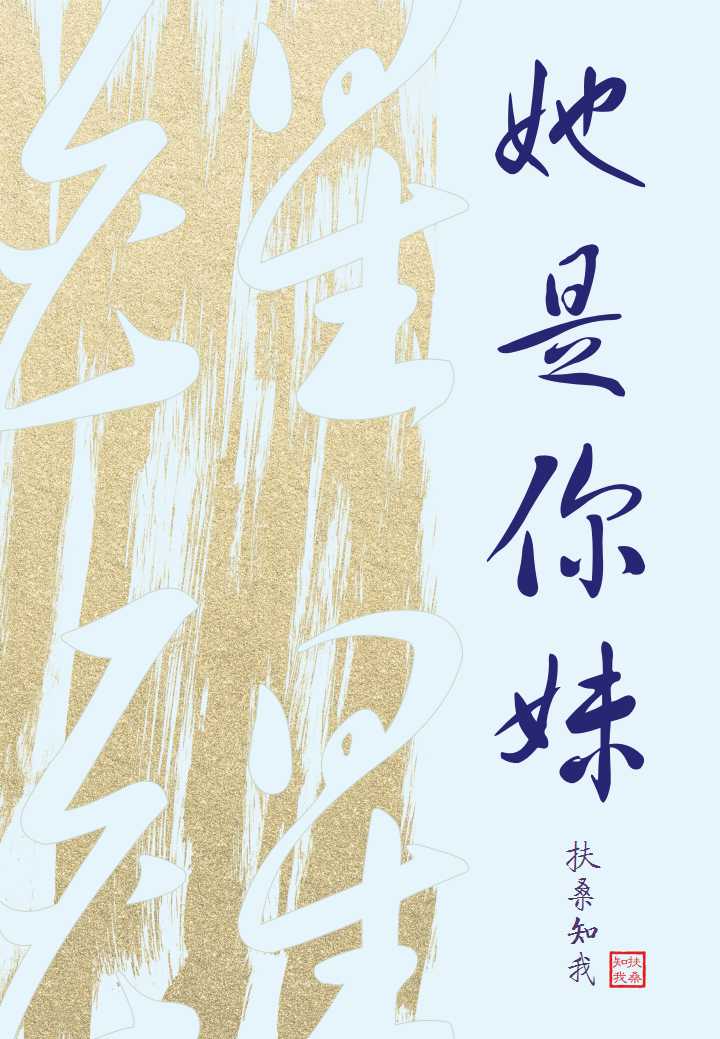 她是你妹
扶桑知我
扶桑
知我